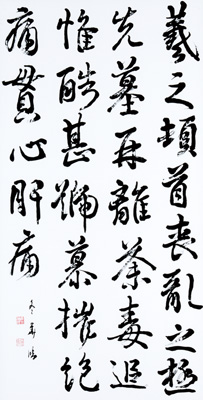 羲之頓首喪亂之極
先墓再離荼毒追
惟酷甚號慕摧絕
痛貫心肝痛